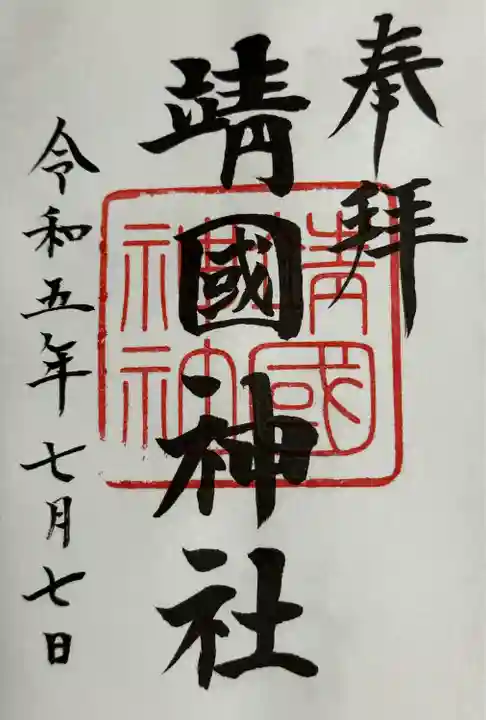 奉拝
靖國神社
令和五年七月七日
靖國神社